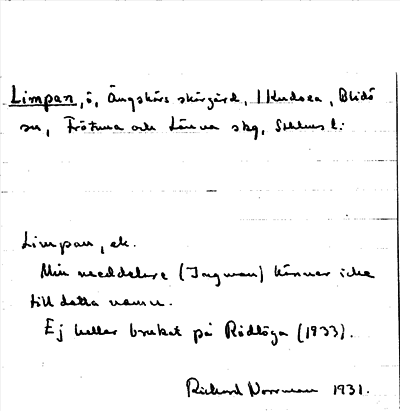 Limpan, ö, Ängskärs skärgård, 1 Kudoxa, Blidö
sn, Frötuna och Länna skg, Sthlms l.
Limpan, ek.
Min meddelare (Ingman) känner icke
till detta namn.
Ej heller brukat på Rödlöga (1933).
Richard Norrman 1931.